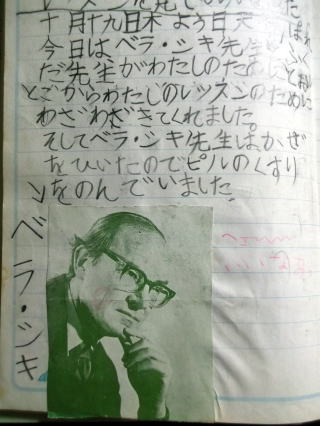 十月十九日木よう日 天
今日はベラ・シキ先生
だ先生がわたしのために とお
とこからわたしのレッスンのために
わざわざきてくれました。
そしてベラ・シキ先生はかぜ
をひいたのでピルのくすり
をのんでいました。
ベラ・シキ